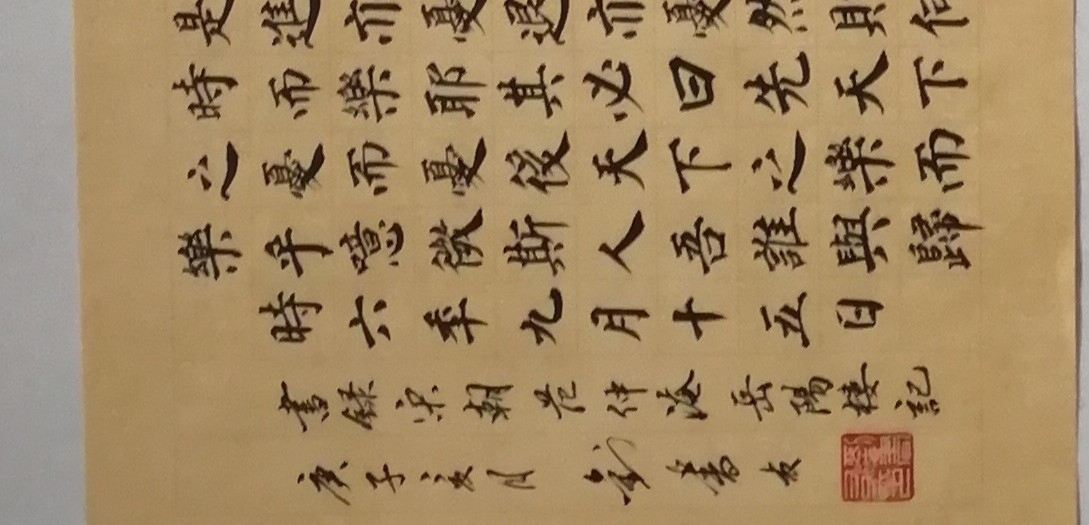 是進亦憂退亦憂然則何
時而樂耶其必曰先天下
之憂而憂後天下之樂而
樂乎噫微斯人吾誰與歸
時六年九月十五日
書錄宋朝范仲淹岳陽樓記
庚子月